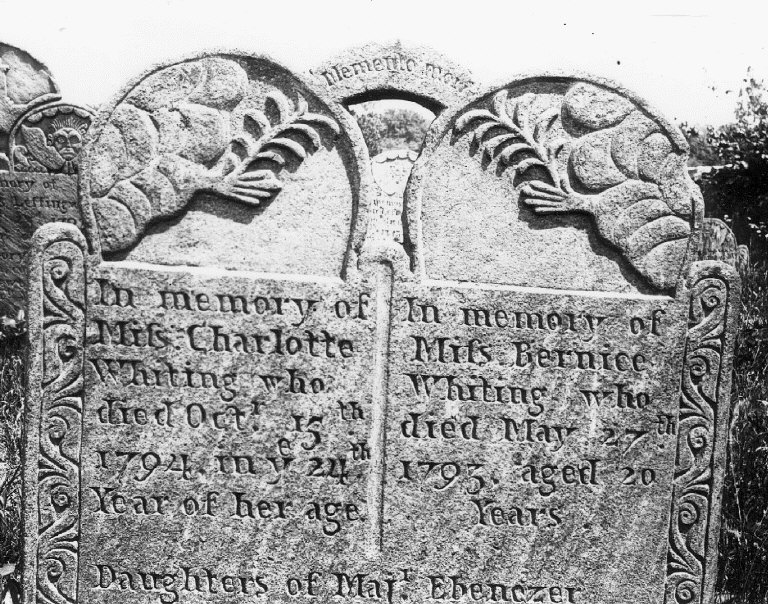 Memento mori
In memory of
Miſs Charlotte
Whiting who
died Octr. 15th
1794. in ye 24th
Year of her age.
In memory of
Miſs Bernice
Whiting who
died May 27th
1793. aged 20
Years
Daughters of Majr. Ebenezer
mory of
Leffing